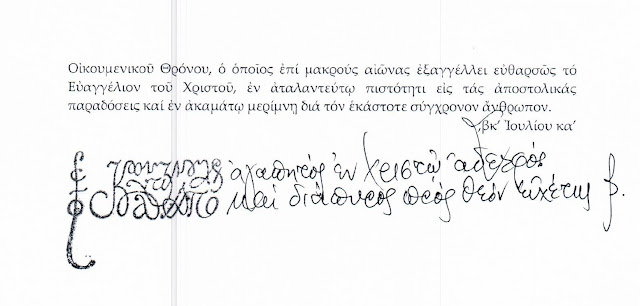 Οἰκουμενικοῦ Θρόνου, ὁ ὁποῖος ἐπί μακρούς αἰῶνας ἐξαγγέλλει εὐθαρσῶς τό
Εὐαγγέλιον τοῦ Χριστοῦ, ἐν ἀταλαντεύτῳ πιστότητι εἰς τάς ἀποστολικάς
παραδόσεις καί ἐν ἀκαμάτῳ μερίμνῃ διά τόν ἑκάστοτε σύγχρονον ἄνθρωπον.
͵βκ’ Ἰουλίου κα’
ἀγαπητός ἐν Χριστῷ ἀδελφός
καί διάπυρος πρός Θεόν εὐχέτης